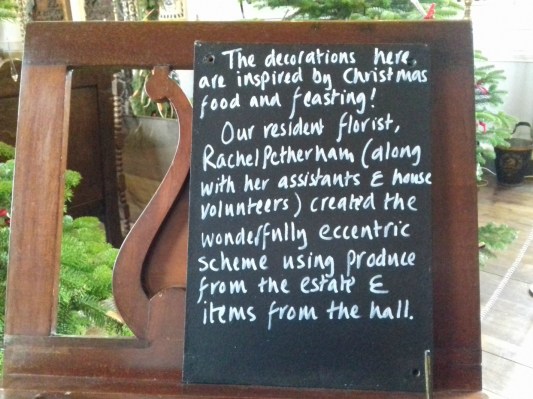 The decorations here,
are inspired by Christmas
food and feasting!
Our resident florist,
Rachel Petherham (along
with her assistants & house
volunteers) created the
wonderfully eccentric
scheme using produce
from the estate &
items from the hall.